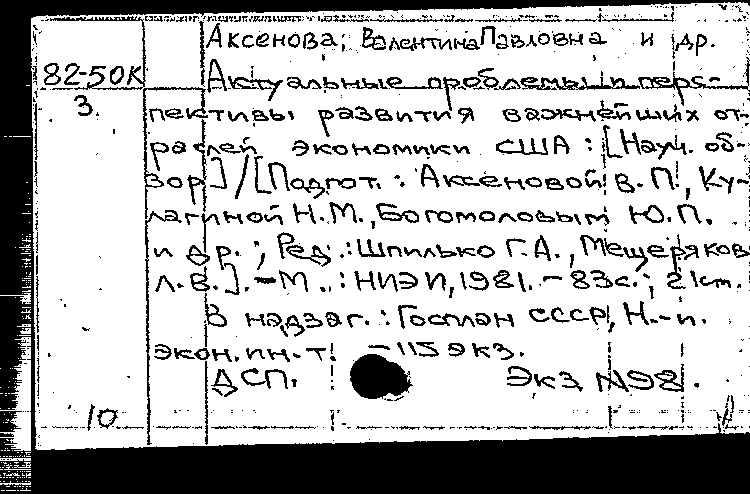 Аксенова, Валентина Павловна и др.
82-50К Актуальные проблемы и перс-
3. пективы развития важнейших от-
раслей экономики США : [Науч. об-
зор] / [Подгот. : Аксеновой В. П., Ку-
лагиной Н. М., Богомоловым Ю. П.
и др. ; Ред. : Шпилько Г. А., Мещеряков
Л. В.]. - М. : НИЭИ, 1981. - 83с. ; 21см.
В надзаг. : Госплан СССР, Н.-и.
экон. ин-т. - 115 экз.
ДСП. Экз №98.
10